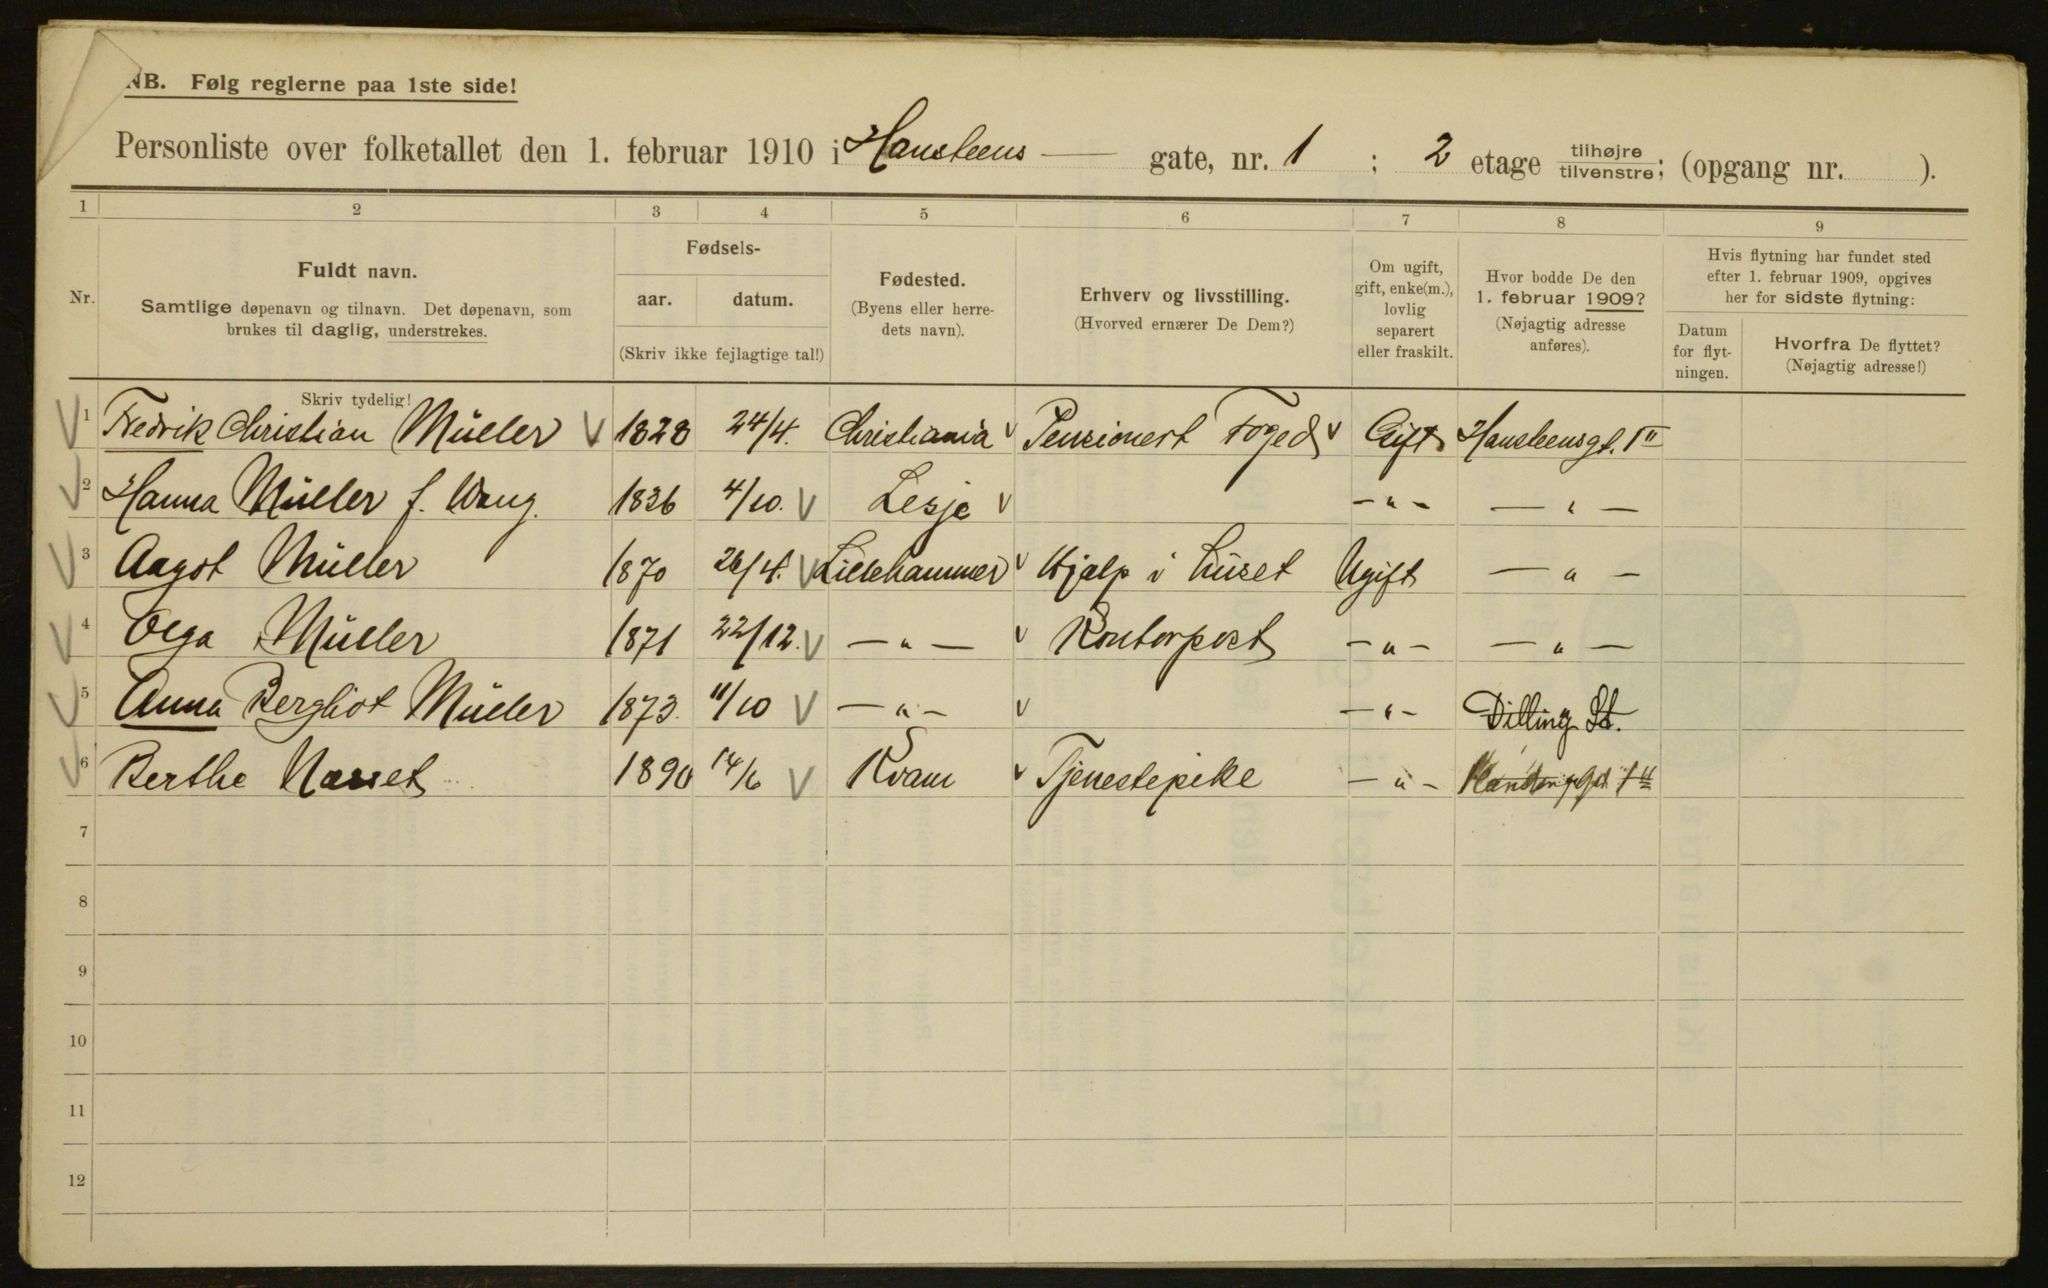 NB. Følg reglerne paa 1ste side!
Personliste over folketallet den 1. februar 1910 i Hansteens — gate, nr. 1 ; 2 etage tilhøjre tilvenstre; (opgang nr. ).
1 2 3 4 5 6 7 8 9
Nr.
Fuldt navn.
Samtlige døpenavn og tilnavn. Det døpenavn, som
brukes til daglig, understrekes.
Fødsels-
aar. datum.
(Skriv ikke fejlagtige tal!)
Fødested.
(Byens eller herre-
dets navn).
Erhverv og livsstilling.
(Hvorved ernærer De Dem?)
Om ugift,
gift, enke(m.),
lovlig
separert
eller fraskilt.
Hvor bodde De den
1. februar 1909?
(Nøjagtig adresse
anføres).
Hvis flytning har fundet sted
efter 1. februar 1909, opgives
her for sidste flytning:
Datum
for flyt-
ningen.
Hvorfra De flyttet?
(Nøjagtig adresse!)
Skriv tydelig!
1 Fredrik Christian Müller 1828 24/4. Christiania Pensionert Foged Gift Hansteensgt. 1 II
2 Hanna Müller f. Wang. 1836 4/10. Lesje — " — — " —
3 Aagot Müller 1870 26/4. Lillehammer Hjælp i huset Ugift — " —
4 Olga Müller 1871 22/12. — " — Kontorpost — " — — " —
5 Anna Bergliot Müller 1873. 11/10 — " — — " — Dilling St.
6 Berthe 1890 14/6 Kvam Tjenestepike — " —
7
8
9
10
11
12